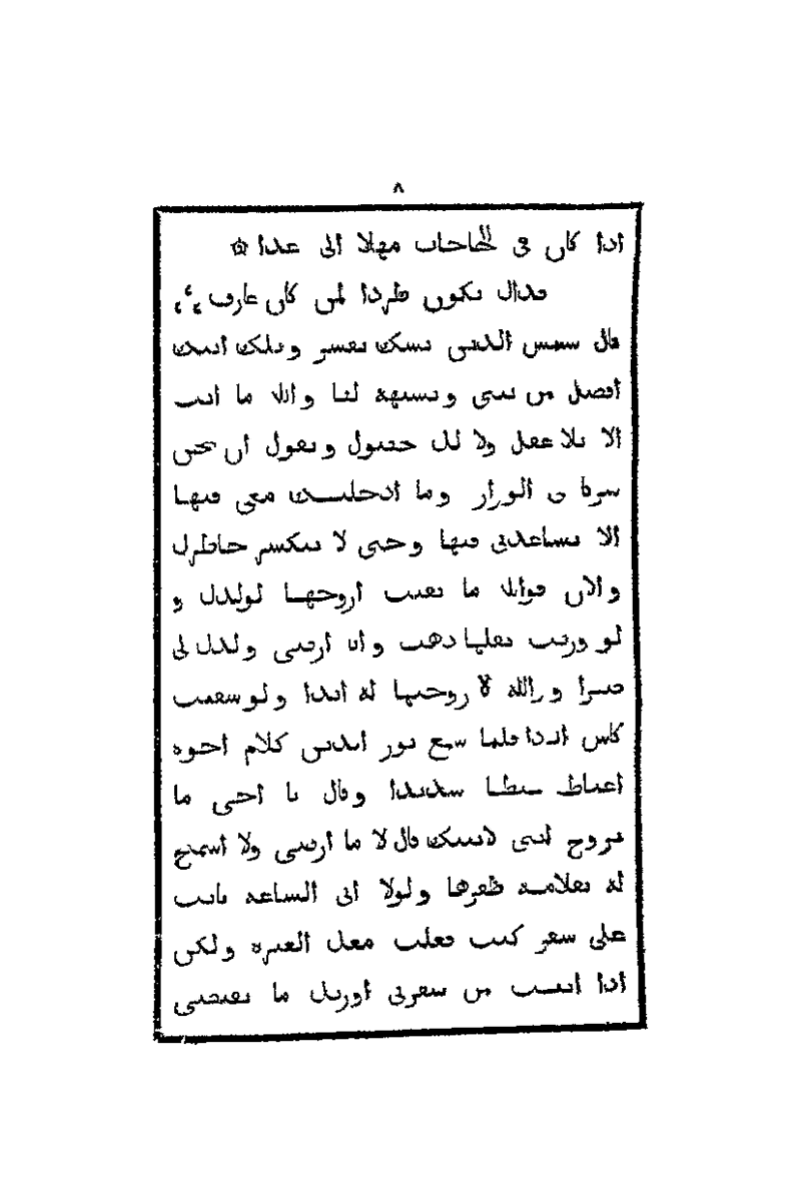 ٨
اذا كان في الحاجات مهلا الى غدا ☆
فذاك يكون طردا لمن كان عارف
قال شمس الدين بسك تقسر وتلك ابنك
افضل من بنتي وتشبهه لنا والله ما انت
الا بلا عقل ولا لك وتقول ان نحن
شركا في الوزار وما ادخلتك معي فيها
الا تساعدني فيها وحتى لا ينكسر خاطرك
والان فوالله ما بقيت ازوجها لولدك و
لو وزنت بقلها ذهب وانا ارضى ولدك لي
صهرا ووالله لا زوجتها له ابدا ولو سقيت
كاس الردا فلما سمع نور الدين كلام اخوه
اغتاظ غيظا شديدا وقال يا اخي ما
تزوج بنتي لابنك قال لا ما ارضى ولا اسمح
له بقلامة ظفرها ولولا اني الساعة بايت
على سفر كنت فعلت معك العبره ولكن
اذا اتيت من سفري اوريك ما يقتضي